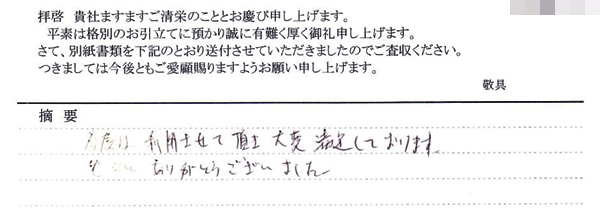 拝啓 貴社ますますご清栄のこととお慶び申し上げます。
平素は格別のお引立てに預かり誠に有難く厚く御礼申し上げます。
さて、別紙書類を下記のとおり送付させていただきましたのでご査収ください。
つきましては今後ともご愛顧賜りますようお願い申し上げます。
敬具
摘 要
今度は 利用させて頂き 大変 満足しております
ありがとうございました